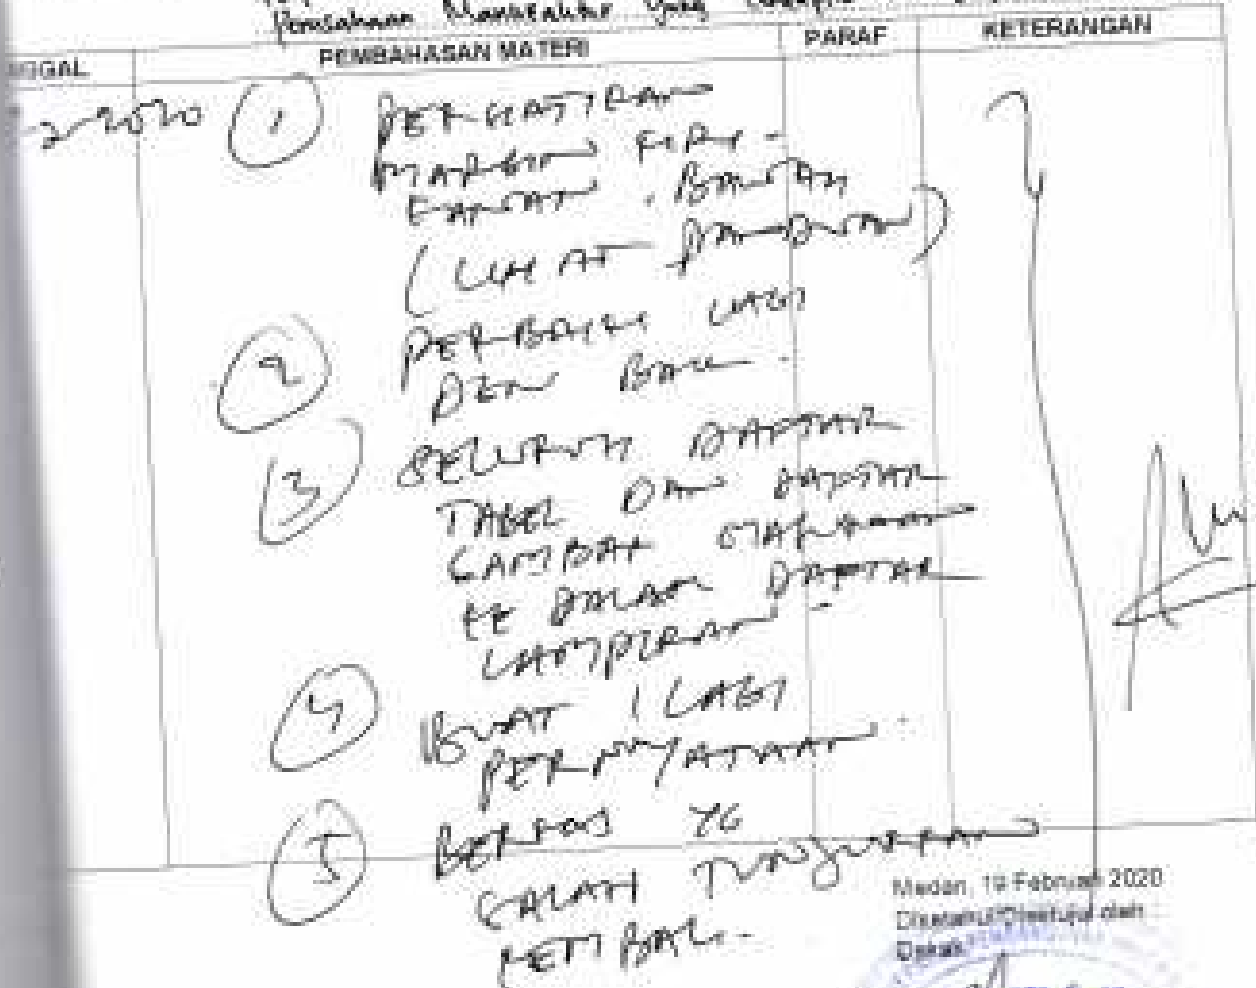 Perusahaan Manufaktur yang
NGGAL PEMBAHASAN MATERI PARAF KETERANGAN
-2-2020 1 PERHATIKAN
MARGIN KIRI -
KANAN . BAWAH
(LIHAT PANDUAN)
2 PERBAIKI LAGI
DEN BAIK.
3 SELURUH DAFTAR
TABEL DAN DAFTAR
GAMBAR MASUKKAN
KE DALAM DAFTAR
LAMPIRAN -
4 BUAT 1 LAGI
PERNYATAAN
5 BERKAS YG
SALAH TUNJUKKAN
KEMBALI.
Medan, 19 Februari 2020
Diketahui/Disetujui oleh :
Dekan